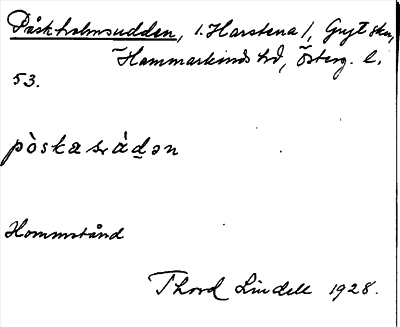 Påskholmsudden, 1. Harstena /, Gryt skn,
Hammarkinds hd, Österg. l.
53.
pòskasɹàdən
Hommstånd
Thord Lindell 1928.